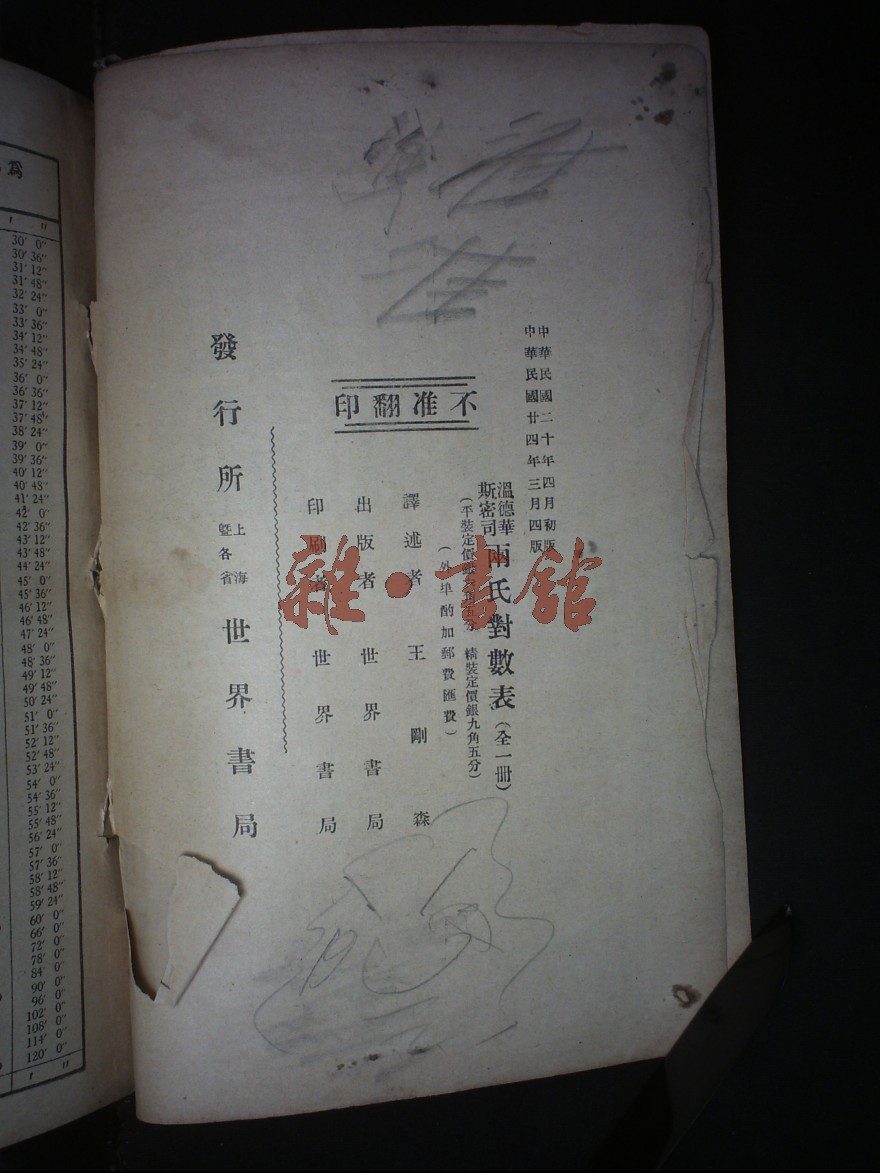 中華民國二十年四月初版
中華民國廿四年三月四版
溫德華
斯密司
兩氏對數表(全一册)
(平裝定價銀 五分 精裝定價銀九角五分)
(外埠酌加郵費匯費)
不准翻印
譯述者 王剛森
出版者 世界書局
印刷者 世界書局
發行所 上海 暨各省 世界書局
雜·書館
爲
′ ″
30′ 0″
30′ 36″
31′ 12″
31′ 48″
32′ 24″
33′ 0″
33′ 36″
34′ 12″
34′ 48″
35′ 24″
36′ 0″
36′ 36″
37′ 12″
37′ 48″
38′ 24″
39′ 0″
39′ 36″
40′ 12″
40′ 48″
41′ 24″
42′ 0″
42′ 36″
43′ 12″
43′ 48″
44′ 24″
45′ 0″
45′ 36″
46′ 12″
46′ 48″
47′ 24″
48′ 0″
48′ 36″
49′ 12″
49′ 48″
50′ 24″
51′ 0″
51′ 36″
52′ 12″
52′ 48″
53′ 24″
54′ 0″
54′ 36″
55′ 12″
55′ 48″
56′ 24″
57′ 0″
57′ 36″
58′ 12″
58′ 48″
59′ 24″
60′ 0″
66′ 0″
72′ 0″
78′ 0″
84′ 0″
90′ 0″
96′ 0″
102′ 0″
108′ 0″
114′ 0″
120′ 0″
′ ″